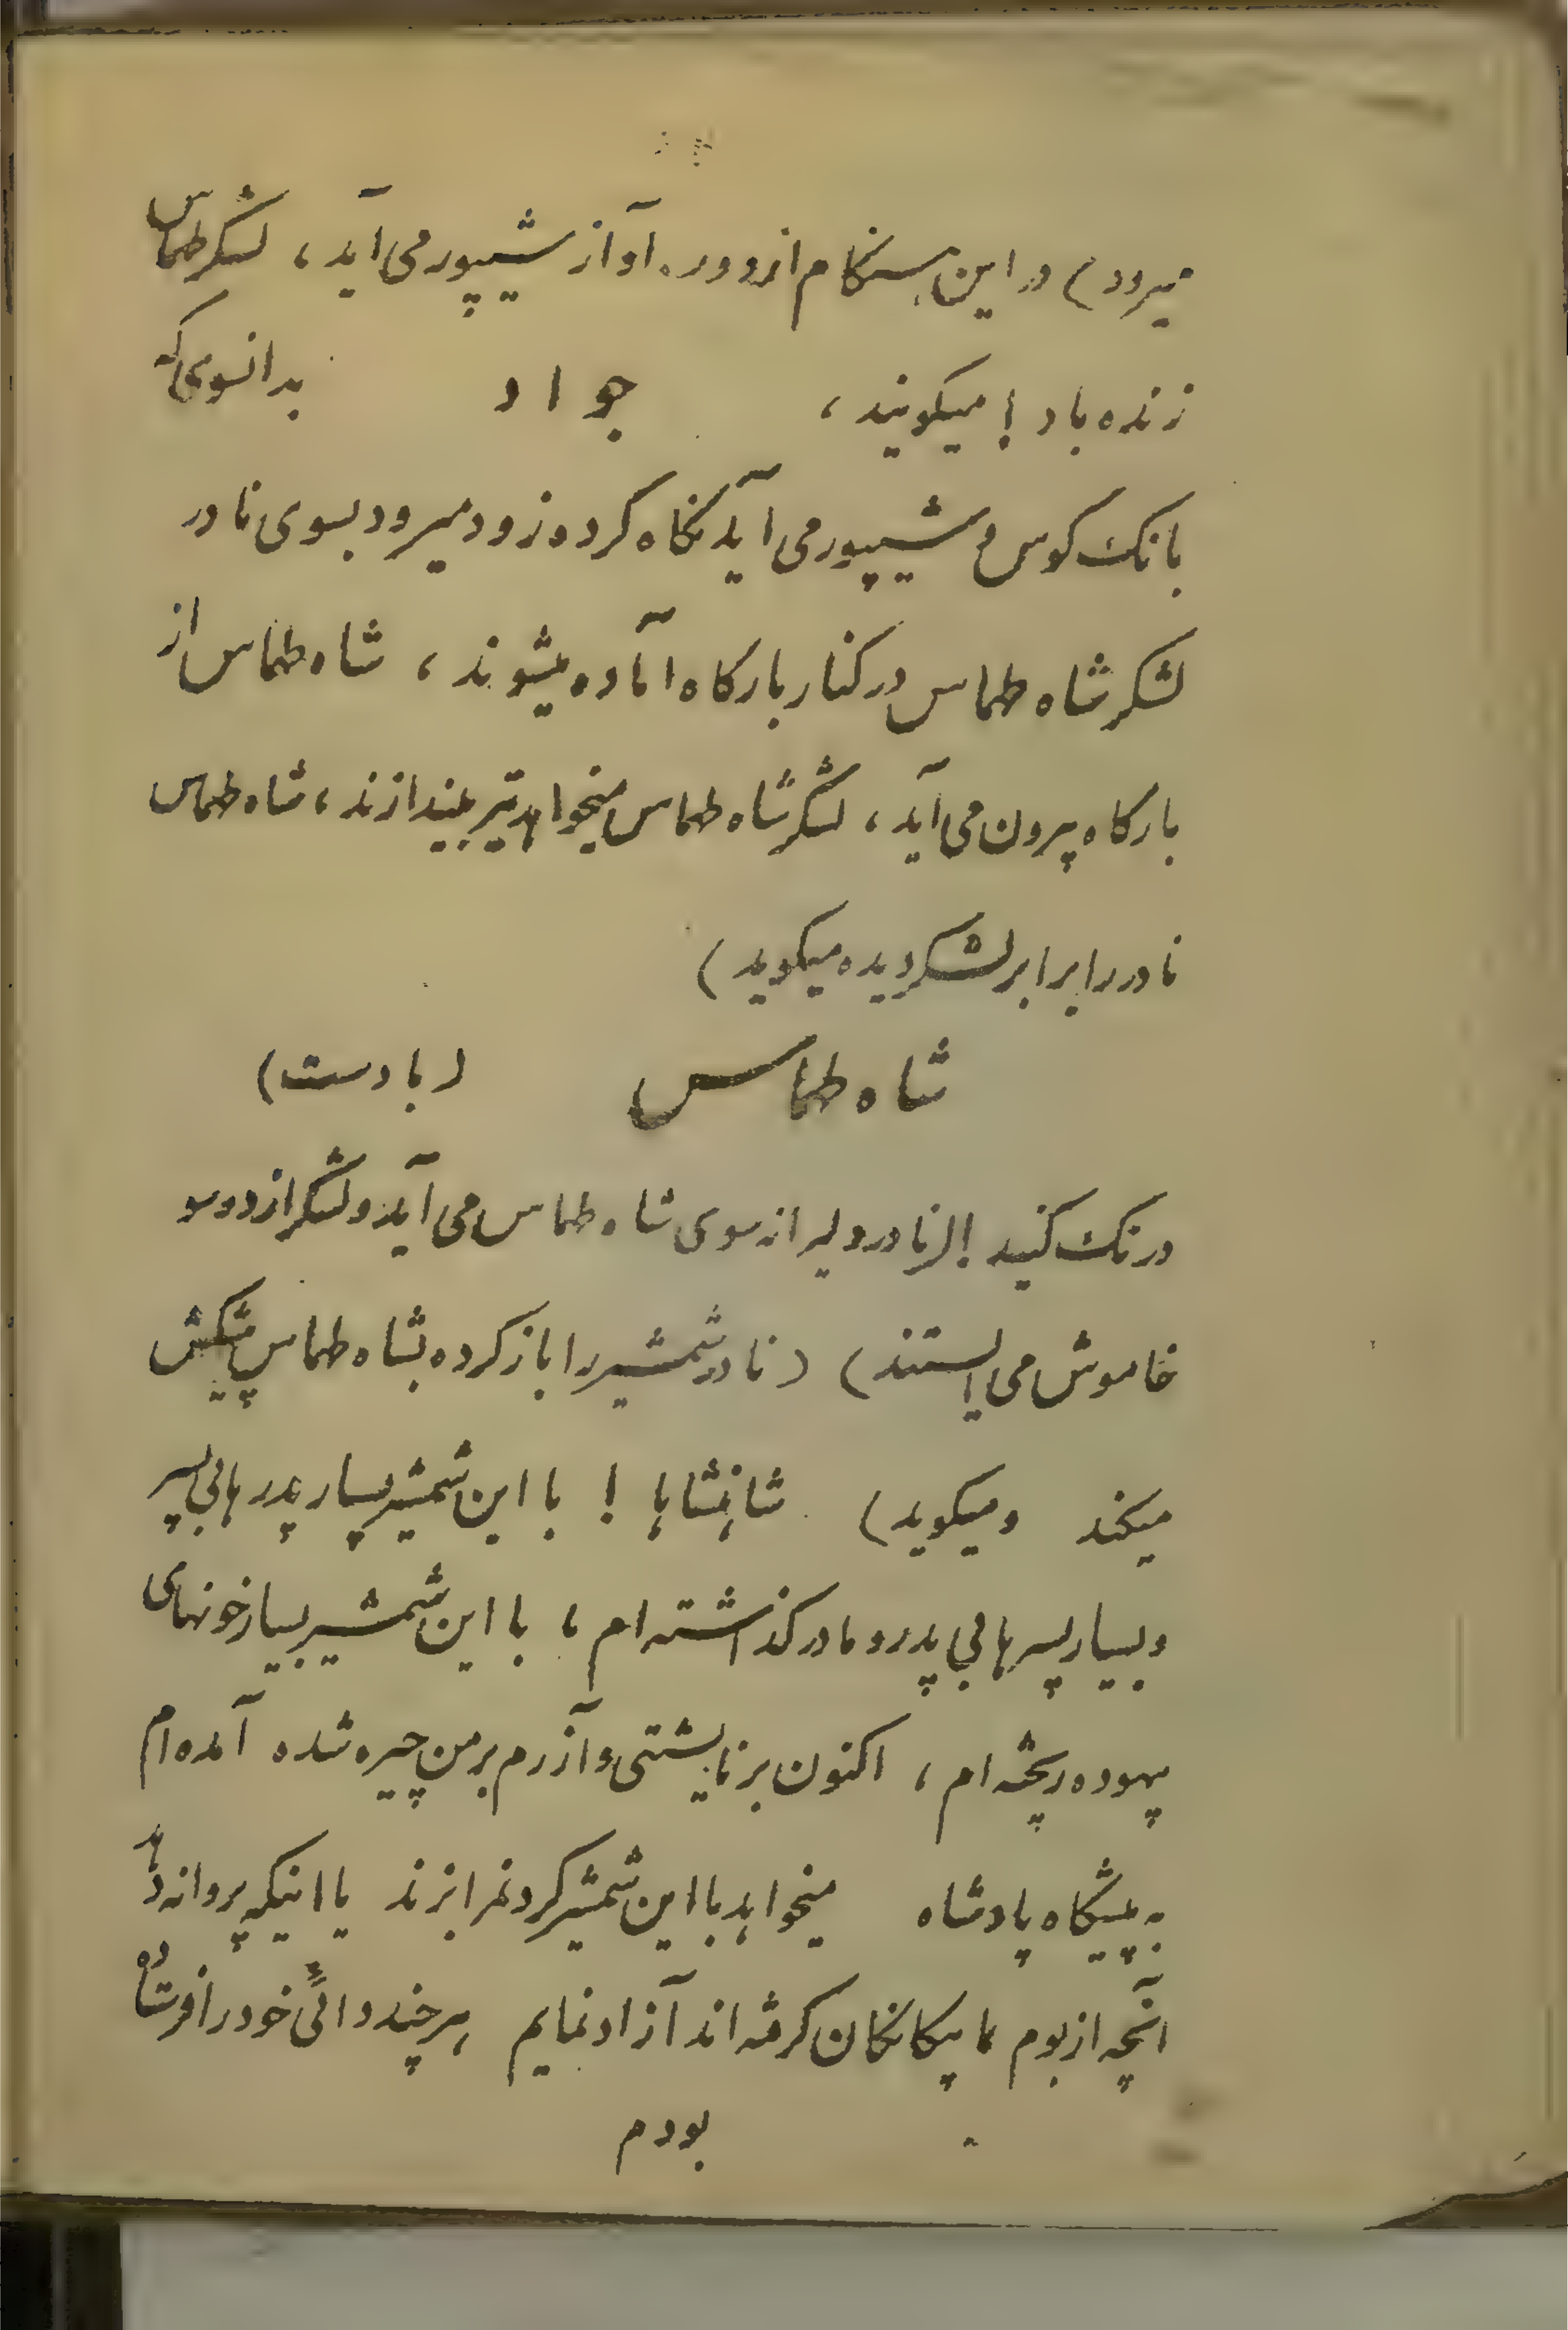 میرود) در این هنگام از دور آواز شیپور می آید، لشکر طهماس
زنده باد! میکویند، جواد بدانسوی که
بانک کوس و شیپور می آید نگاه کرده زود میرود بسوی نادر
لشکر شاه طهماس در کنار بارکاه آماده میشوند، شاه طهماس از
بارکاه پیرون می آید، لشکر شاه طهماس میخواهد تیر بیندازند، شاه طهماس
نادر را برابر لشکر دیده میکوید)
شاه طهماس (با دست)
درنک کنید! (نادر دلیرانه سوی شاه طهماس می آید و لشکر از دو سو
خاموش می ایستند) (نادر شمشیر را باز کرده بشاه طهماس پیشکش
میکند و میکوید) شاهنشاها! با این شمشیر بسیار پدرها بی پسر
و بسیار پسرها بی پدر و مادر کذاشته ام، با این شمشیر بسیار خونهای
بیهوده ریخته ام، اکنون بر نایشتی و آزرم بر من چیره شده آمده ام
به پیشگاه پادشاه میخواهد با این شمشیر کردنمرا بزند یا اینکه پروانه دهد
آنچه از بوم ما بیکانکان کرفته اند آزاد نمایم هر چند دائی خود را فرستاده
بودم